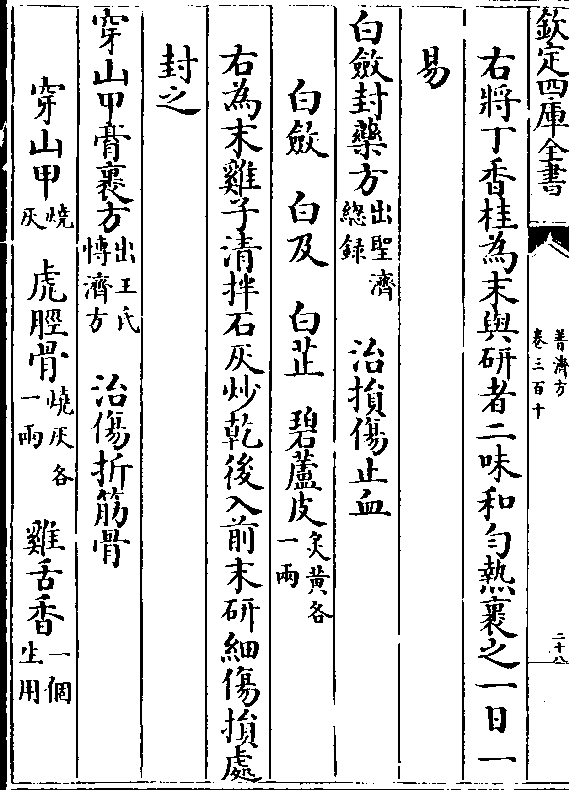 欽定四庫全書
普濟方
卷三百十
二十八
右將丁香桂為末與研者二味和勻熱裹之一日一
易
白斂封藥方出聖濟總録 治損傷止血
白斂 白及 白芷 碧蘆皮炙黄各一兩
右為末雞子清拌石灰炒乾後入前末研細傷損處
封之
穿山甲膏裹方出王氏愽濟方 治傷折筋骨
穿山甲燒灰 虎脛骨燒灰各一兩 雞舌香一個生用